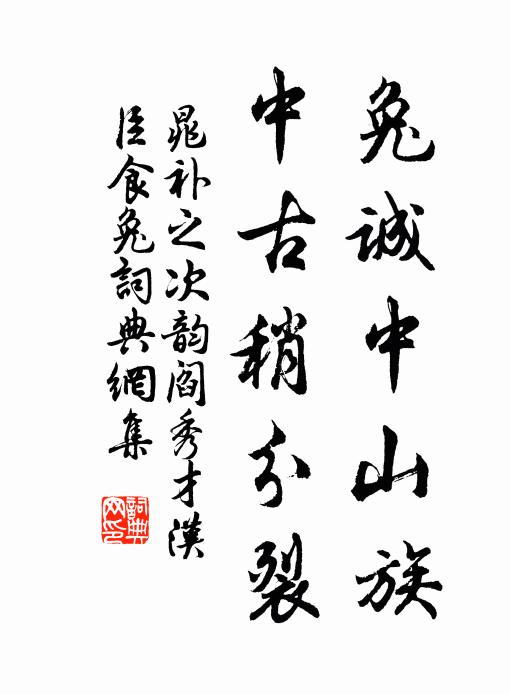 兔誠中山族
中古稍分裂
晁补之次韵閻秀才漢
臣食兔詞典網集
詞典網印